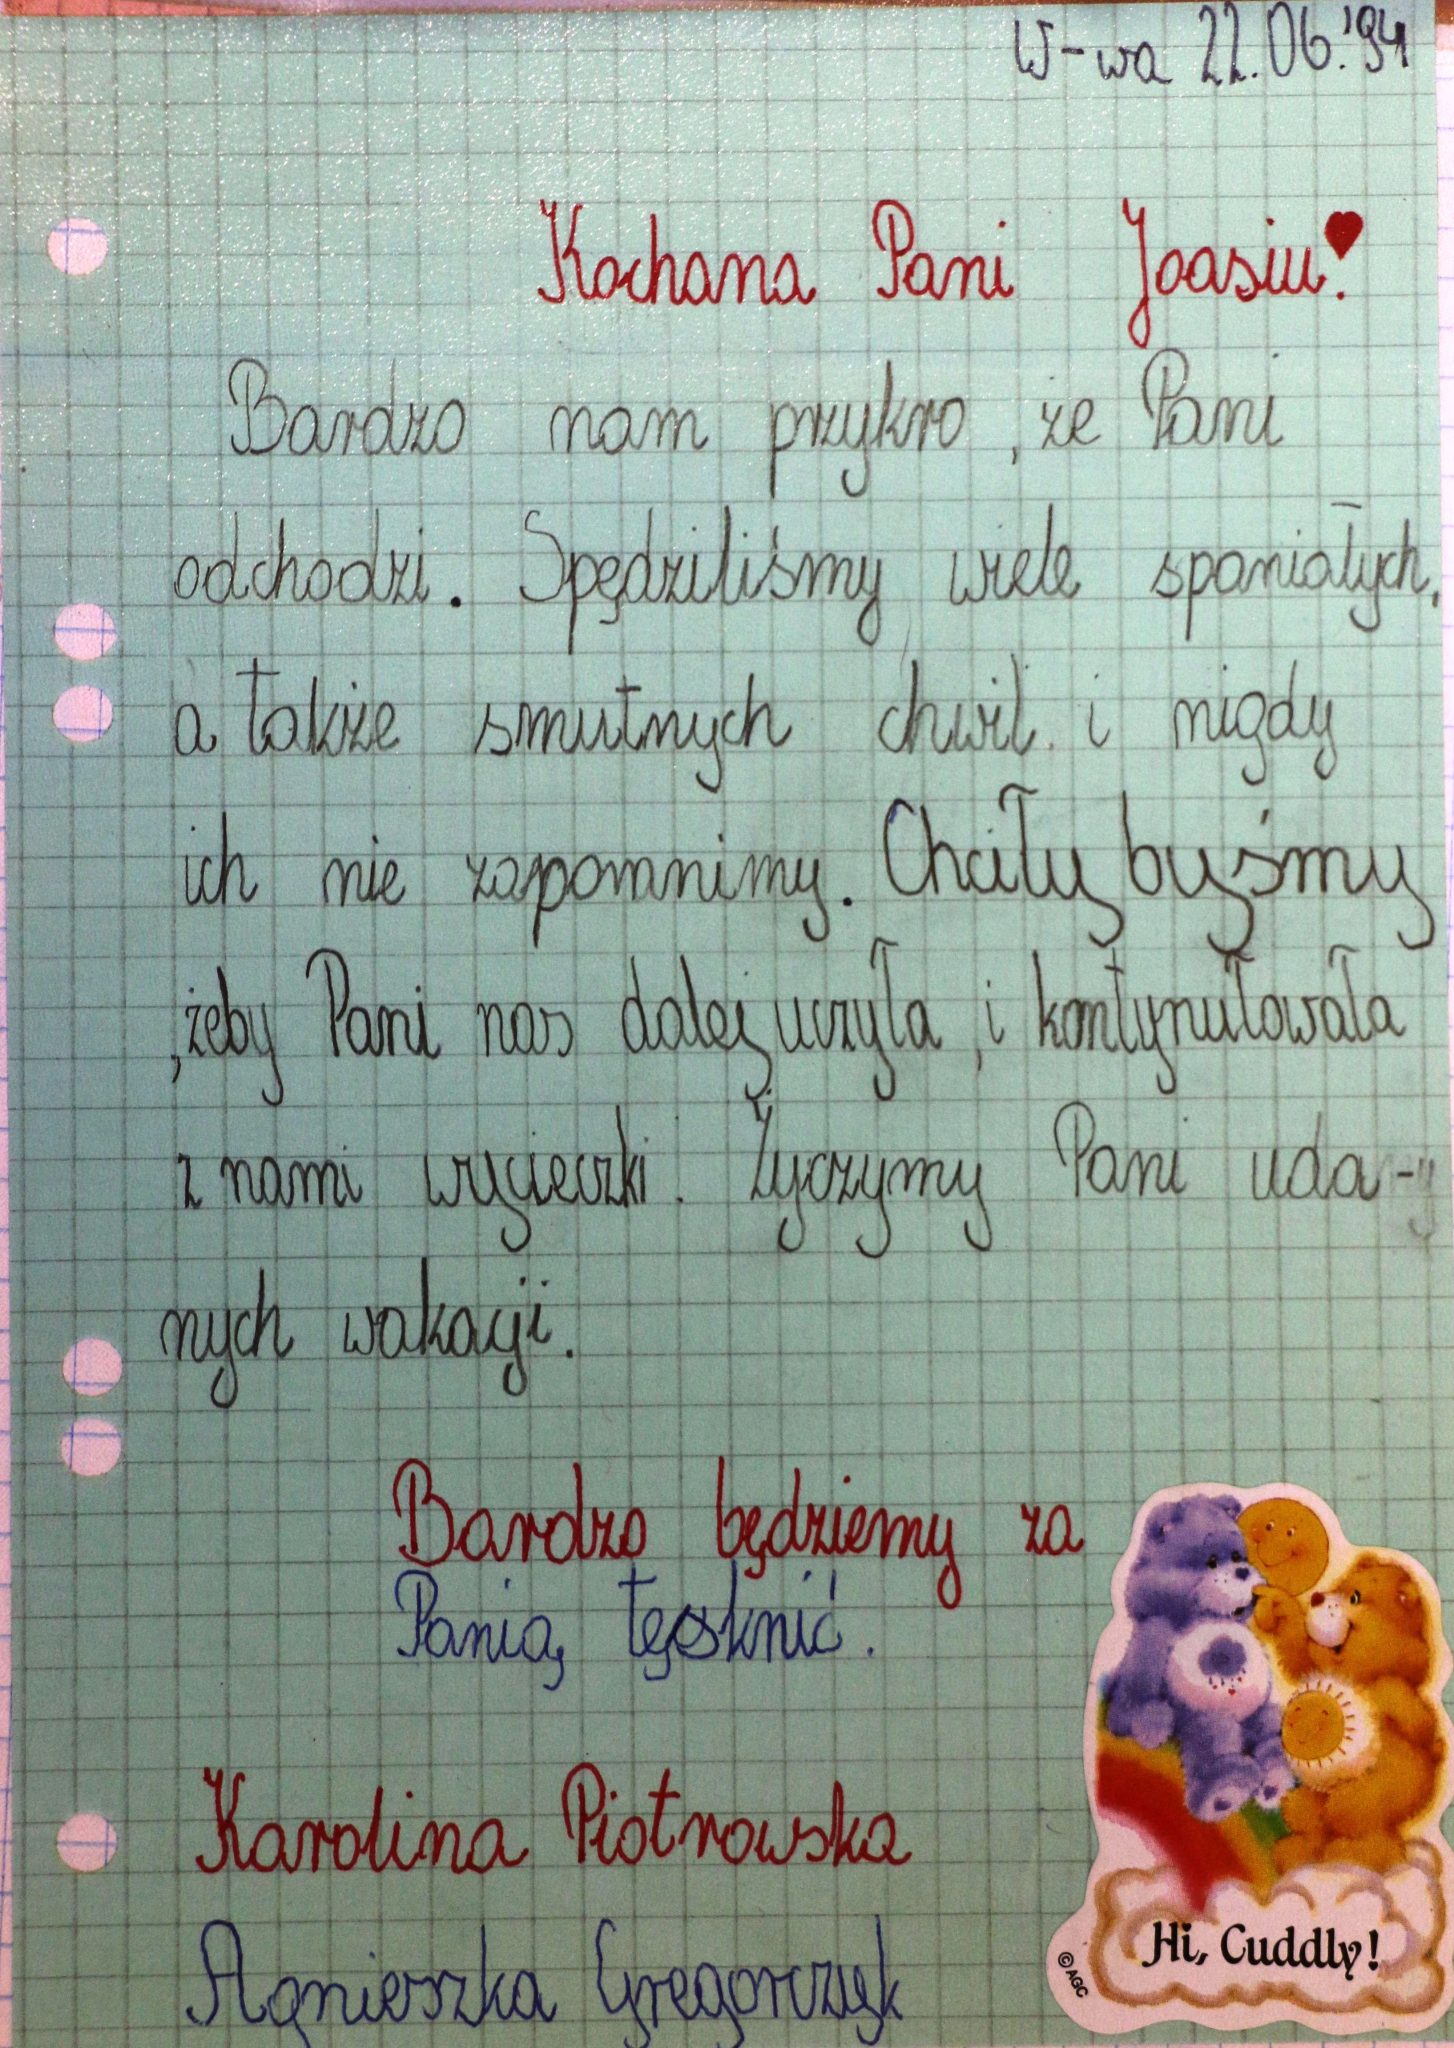 W-wa 22.06.'94
Kochana Pani Joasiu!
Bardzo nam przykro, że Pani
odchodzi. Spędziliśmy wiele spaniałych,
a także smutnych chwil i nigdy
ich nie zapomnimy. Chciały byśmy
, żeby Pani nas dalej uczyła, i kontynułowała
z nami wycieczki. Życzymy Pani uda-
nych wakacji.
Bardzo będziemy za
Panią tęsknić.
Karolina Piotrowska
Agnieszka Gregorczyk
Hi, Cuddly!
© AGC